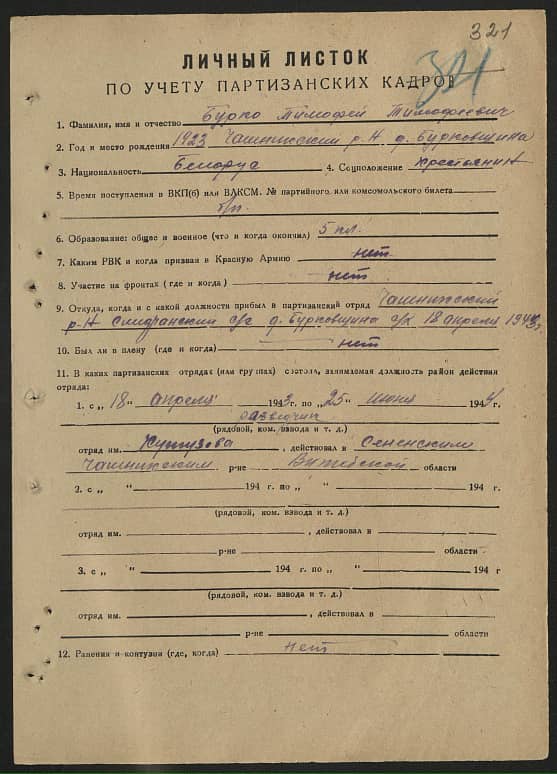 321
321
ЛИЧНЫЙ ЛИСТОК
ПО УЧЕТУ ПАРТИЗАНСКИХ КАДРОВ
1. Фамилия, имя и отчество Бурко Тимофей Тимофеевич
2. Год и место рождения 1923 Чашникский р-н д. Бурковщина
3. Национальность Беларус 4. Соцположение крестьянин
5. Время поступления в ВКП(б) или ВЛКСМ, № партийного или комсомольского билета
б/п.
6. Образование: общее и военное (что и когда окончил) 5 кл.
7. Каким РВК и когда призван в Красную Армию нет
8. Участие на фронтах (где и когда) нет
9. Откуда, когда и с какой должности прибыл в партизанский отряд Чашникский
р-н с/с д. Бурковщина с/х 18 апреля 1943г.
10. Был ли в плену (где и когда) нет
11. В каких партизанских отрядах (или группах) состоял, занимаемая должность район действия
отряда:
1. с „18" апреля 1943 г. по „25" июня 1944 г.
разведчик
(рядовой, ком. взвода и т. д.)
отряд им. Кутузова, действовал в Сененским
Чашникским р-не Витебской области
2. с „ " 194 г. по „ " 194 г.
(рядовой, ком. взвода и т. д.)
отряд им. , действовал в
р-не области
3. с „ " 194 г. по „ " 194 г
(рядовой, ком. взвода и т. д.)
отряд им. , действовал в
р-не области
12. Ранения и контузии (где, когда) нет